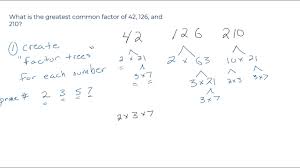 What is the greatest common factor of 42, 126, and
210?
① create
"factor trees"
for each number
prime # 2 3 5 7
42 126 210
2 x 21 2 x 63 10 x 21
3 x 7 3 x 21 2 x 5 3 x 7
3 x 7
2 x 3 x 7